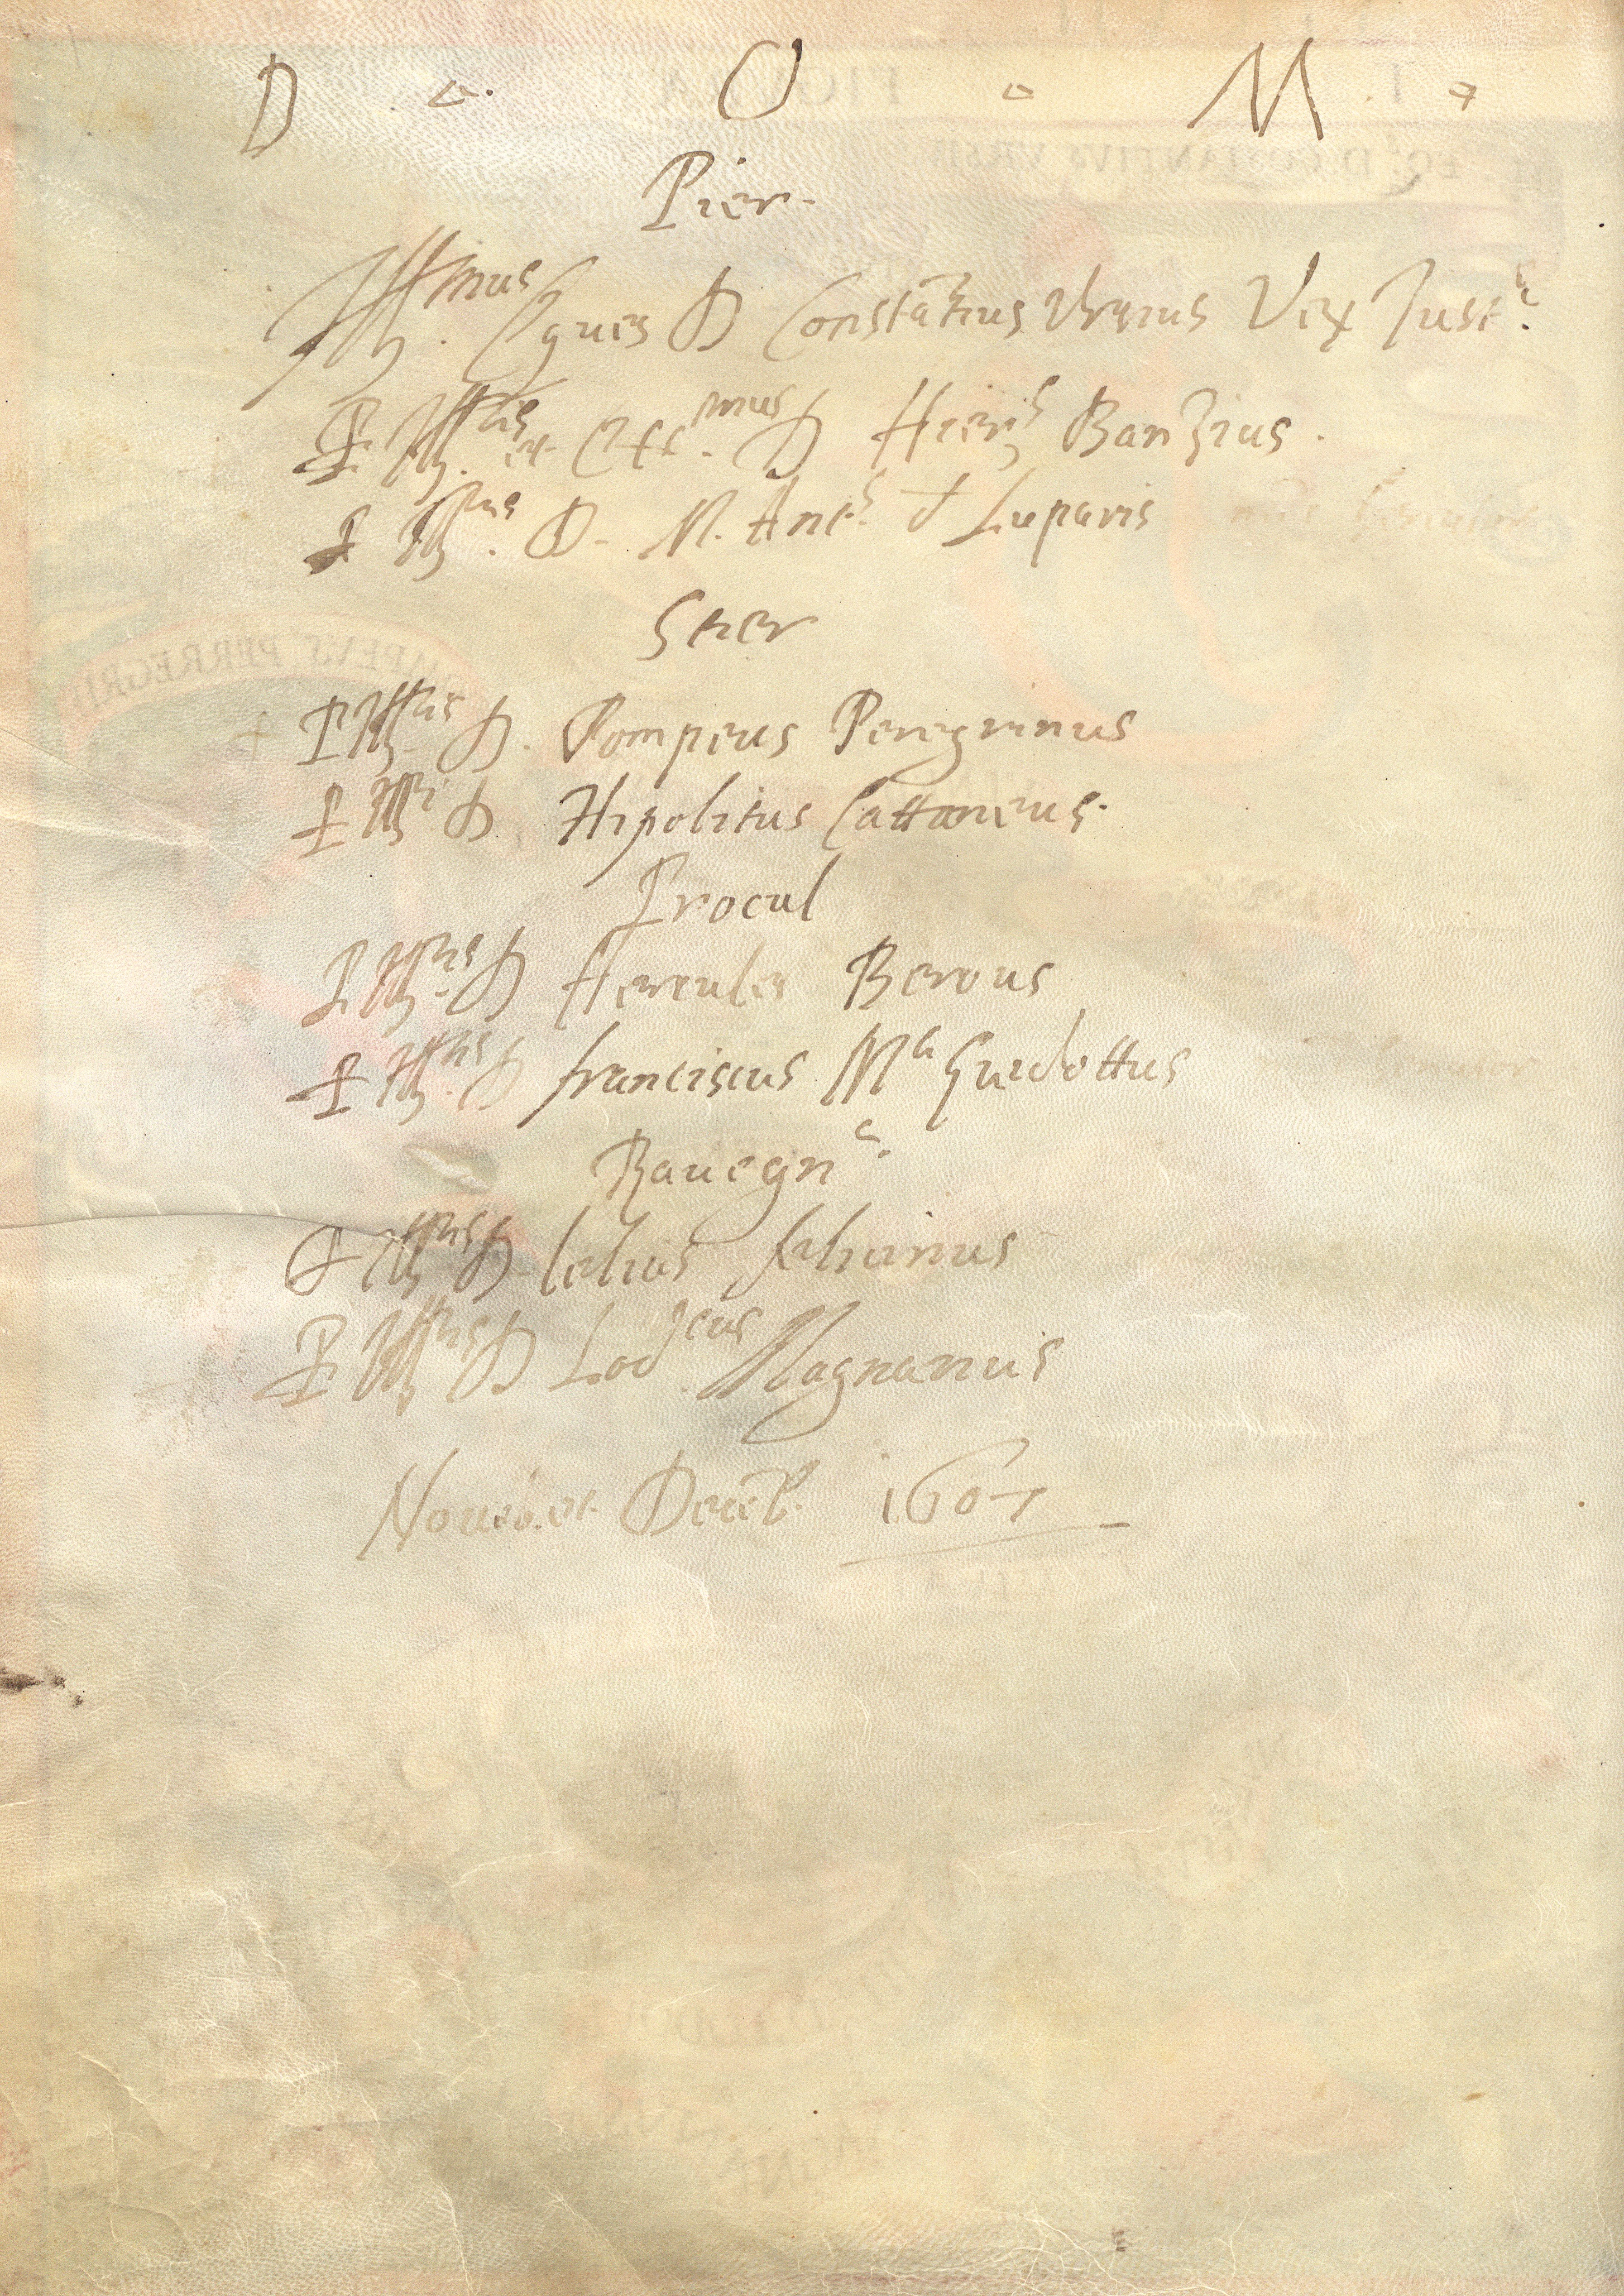 D . O . M .
Pier.
Ill.mus Eques D Constãtius Ursius Vex Just.s
P. Ill.ris et Ecc.mus D Hier.s Banzius.
P. Ill.ris D. M. Ant.s d Luparis
Ster
P. Ill.ris D. Pompeus Peregrinus
P. Ill.ri D. Hipolitus Cattaneus.
Procul
P. Ill.ris D Hercules Berous
P. Ill.ris D franciscus M.a Guidottus
Rauegn.a
P. Ill.ris D. lelius felicinus
P. Ill.ris D Lod.cus Magnanus
Noueb. et Deceb. 1607